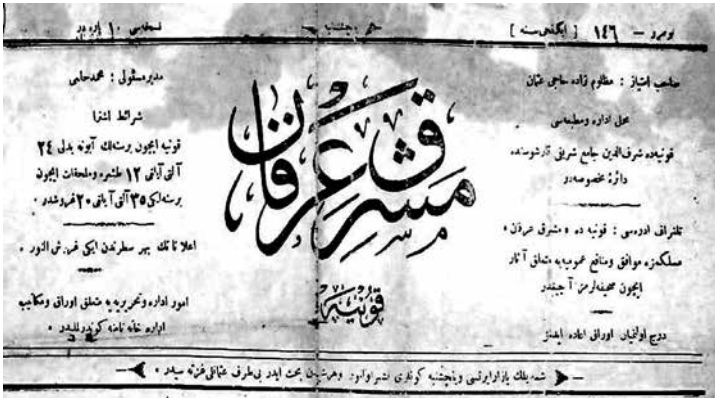 نومرو — ١٤٦ [ ایکنجی سنه ]
پنجشنبه
نسخه‌سی ١٠ پاره‌در
صاحب امتیاز : مظلوم زاده حاجی عثمان
محل اداره ومطبعه‌سی
قونیه‌ده شرف‌الدین جامع شریفی قارشوسنده
دائرهٔ مخصوصه‌در
تلغراف ادره‌سی : قونیه ده « مشرق عرفان »
مسلکمزه موافق ومنافع عمومیه‌یه متعلق آثار
ایچون صحیفه‌لرمز آچیقدر
درج اولنمیان اوراق اعاده ایدلمز
مشرق عرفان
قونیه
مدیر مسئولی : محمد حلمی
شرائط اشترا
قونیه ایچون برسنه‌لك آبونه بدلی ٢٤
آلتی آیلغی ١٢ طشره وملحقات ایچون
برسنه‌لکی ٣٥ آلتی آیلغی ٢٠ غروشدر .
اعلاناتك بهر سطرندن ایکی غروش آلنور .
امور اداره وتحریریه‌یه متعلق اوراق ومکاتیب
اداره خانه نامنه کوندرلملیدر .
شمدیلك پازارایرتسی وپنجشنبه کونلری نشر اولنور وهرشیدن بحث ایدر بی‌طرف عثمانلی غزته سیدر .